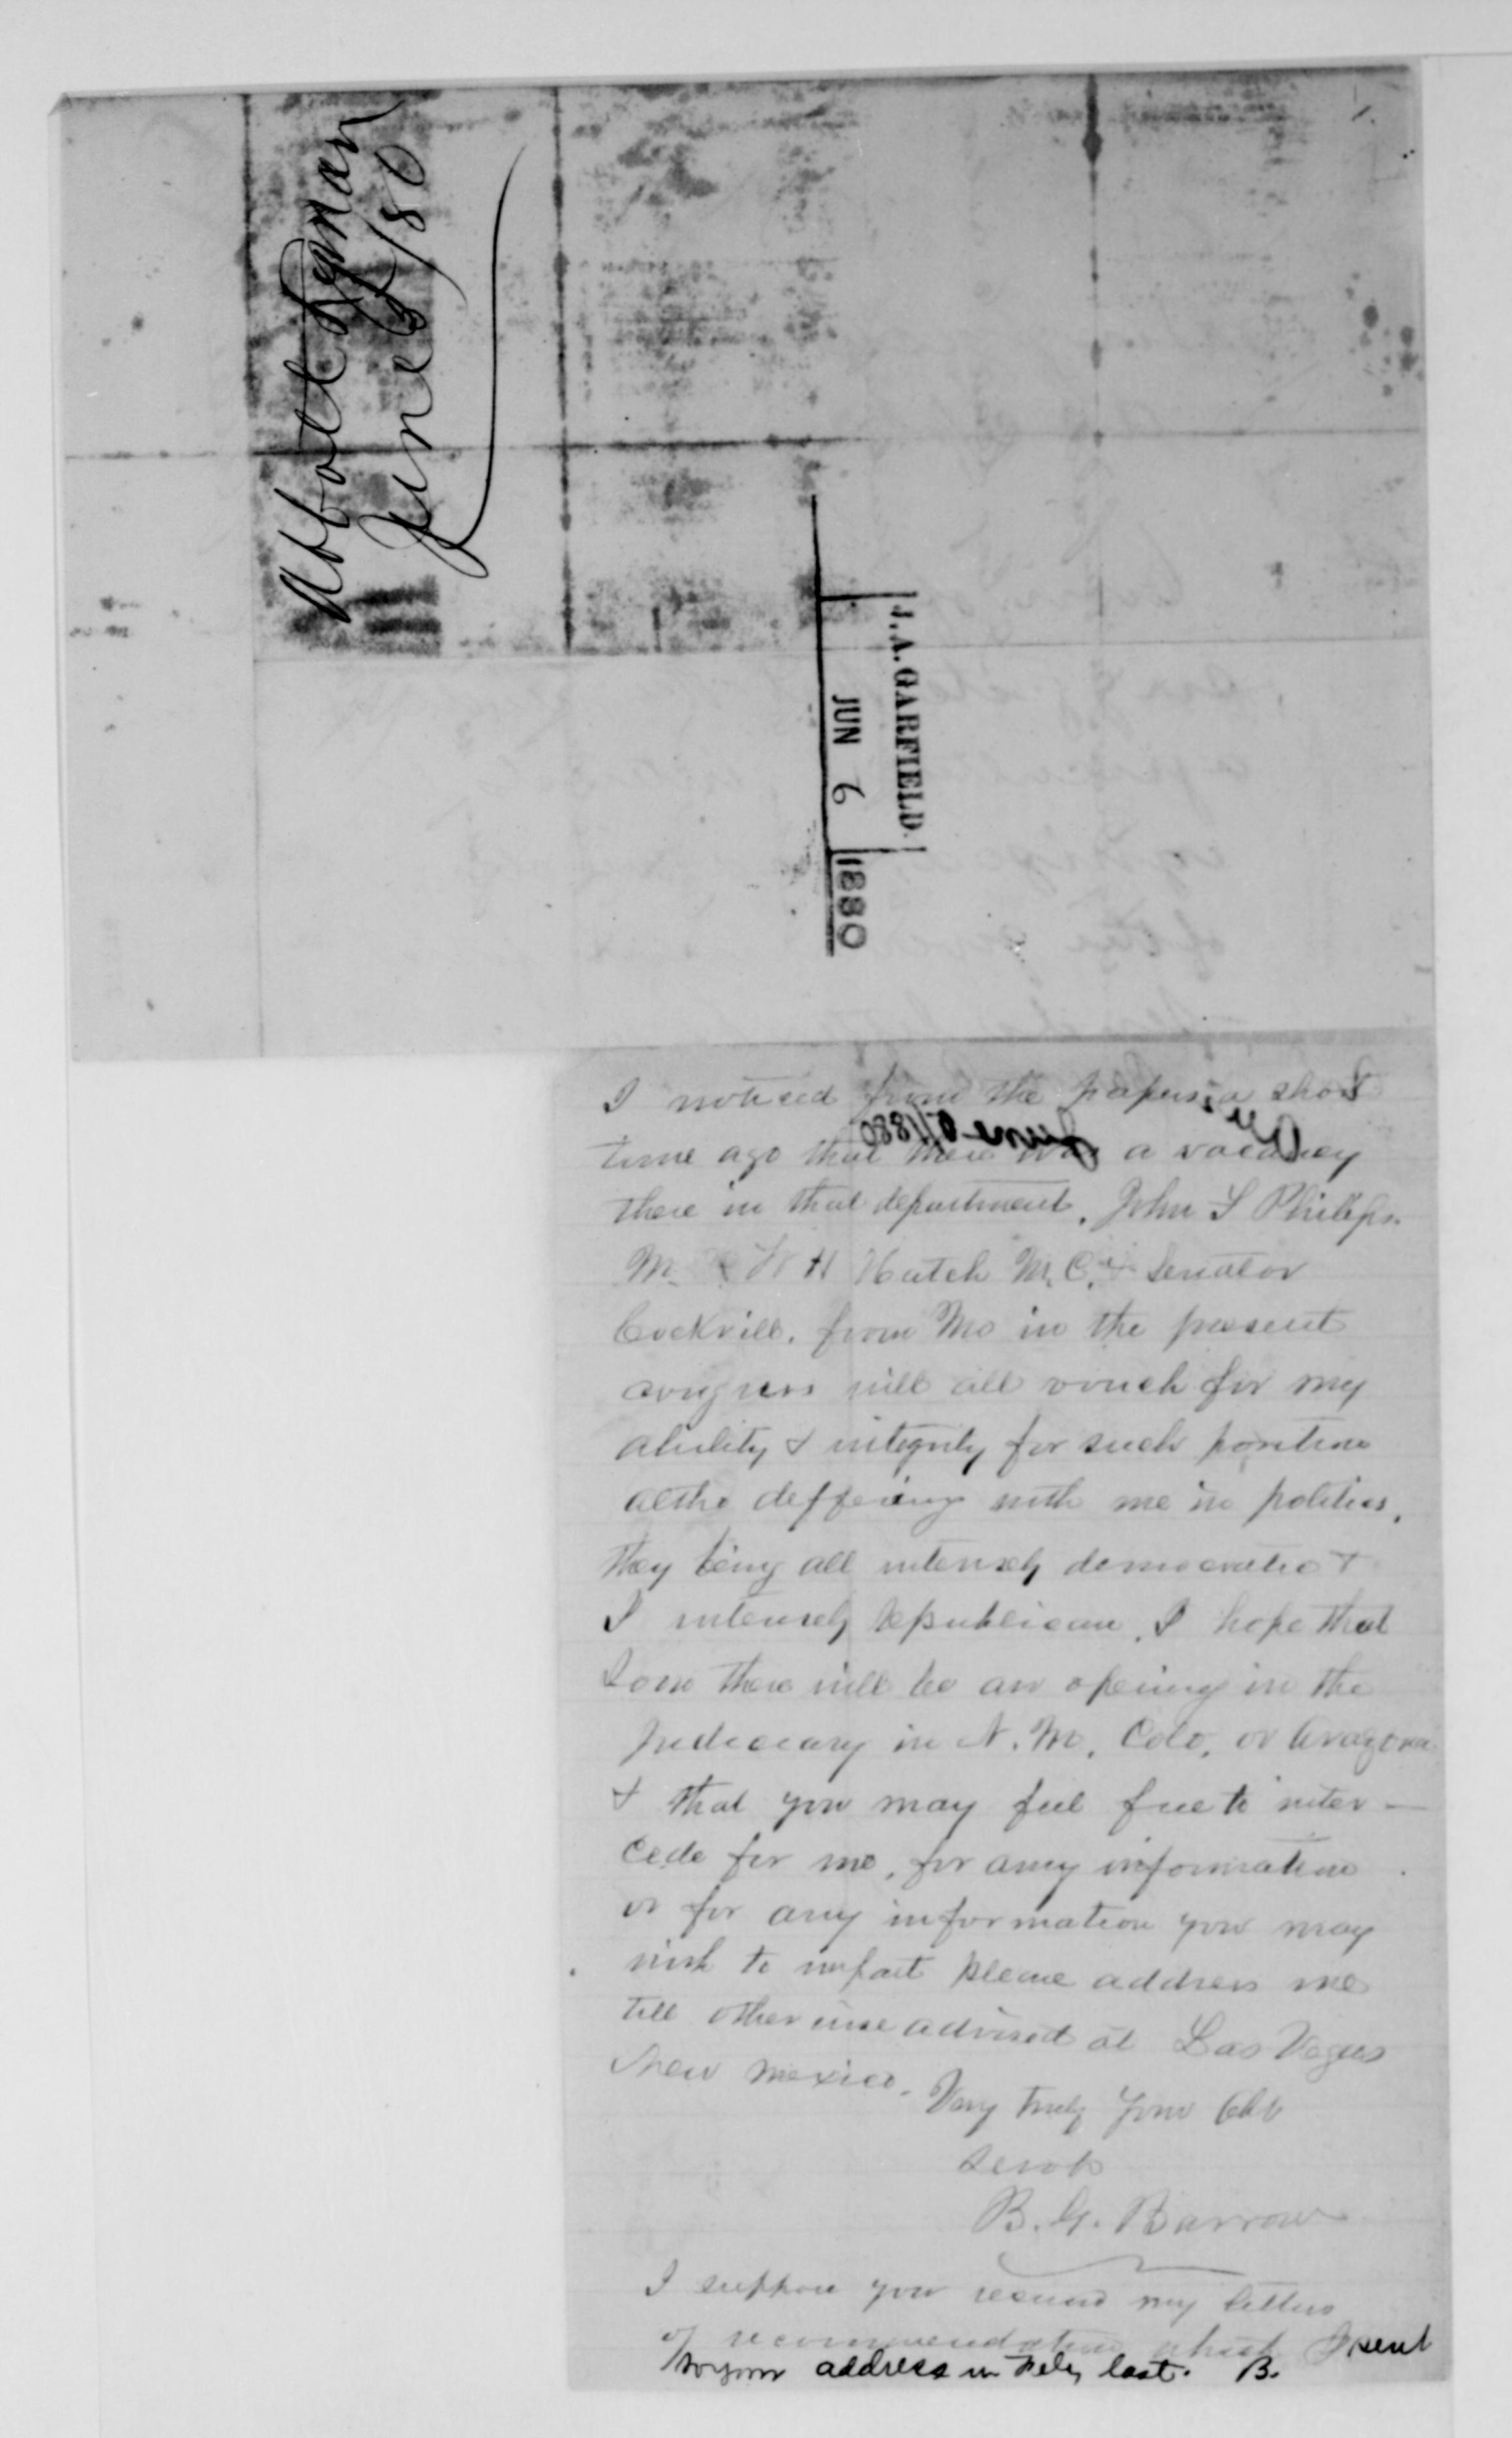 Abbott Lyman
June 5/80
J. A. GARFIELD.
JUN 6 1880
I noticed from the papers a short
June 5/1880
time ago that there was a vacancy
there in that department. John F Philips.
M. W H Hatch M.C. & Senator
Cockrill. from Mo in the present
congress will all vouch for my
ability & integrity for such position
altho deffering with me in politics,
they being all intensely democratic &
I intensely republican. I hope that
soon there will be an opening in the
Judiciary in N. M. Colo. or Arazona
& that you may feel free to inter-
cede for me, for any information
or for any information you may
wish to impart please address me
till otherwise advised at Las Vegas
New Mexico. Very truly your Obt
Servt
B. G. Barrow
I suppose you received my letters
of recommendation which I sent
to your address in Feby last. B.